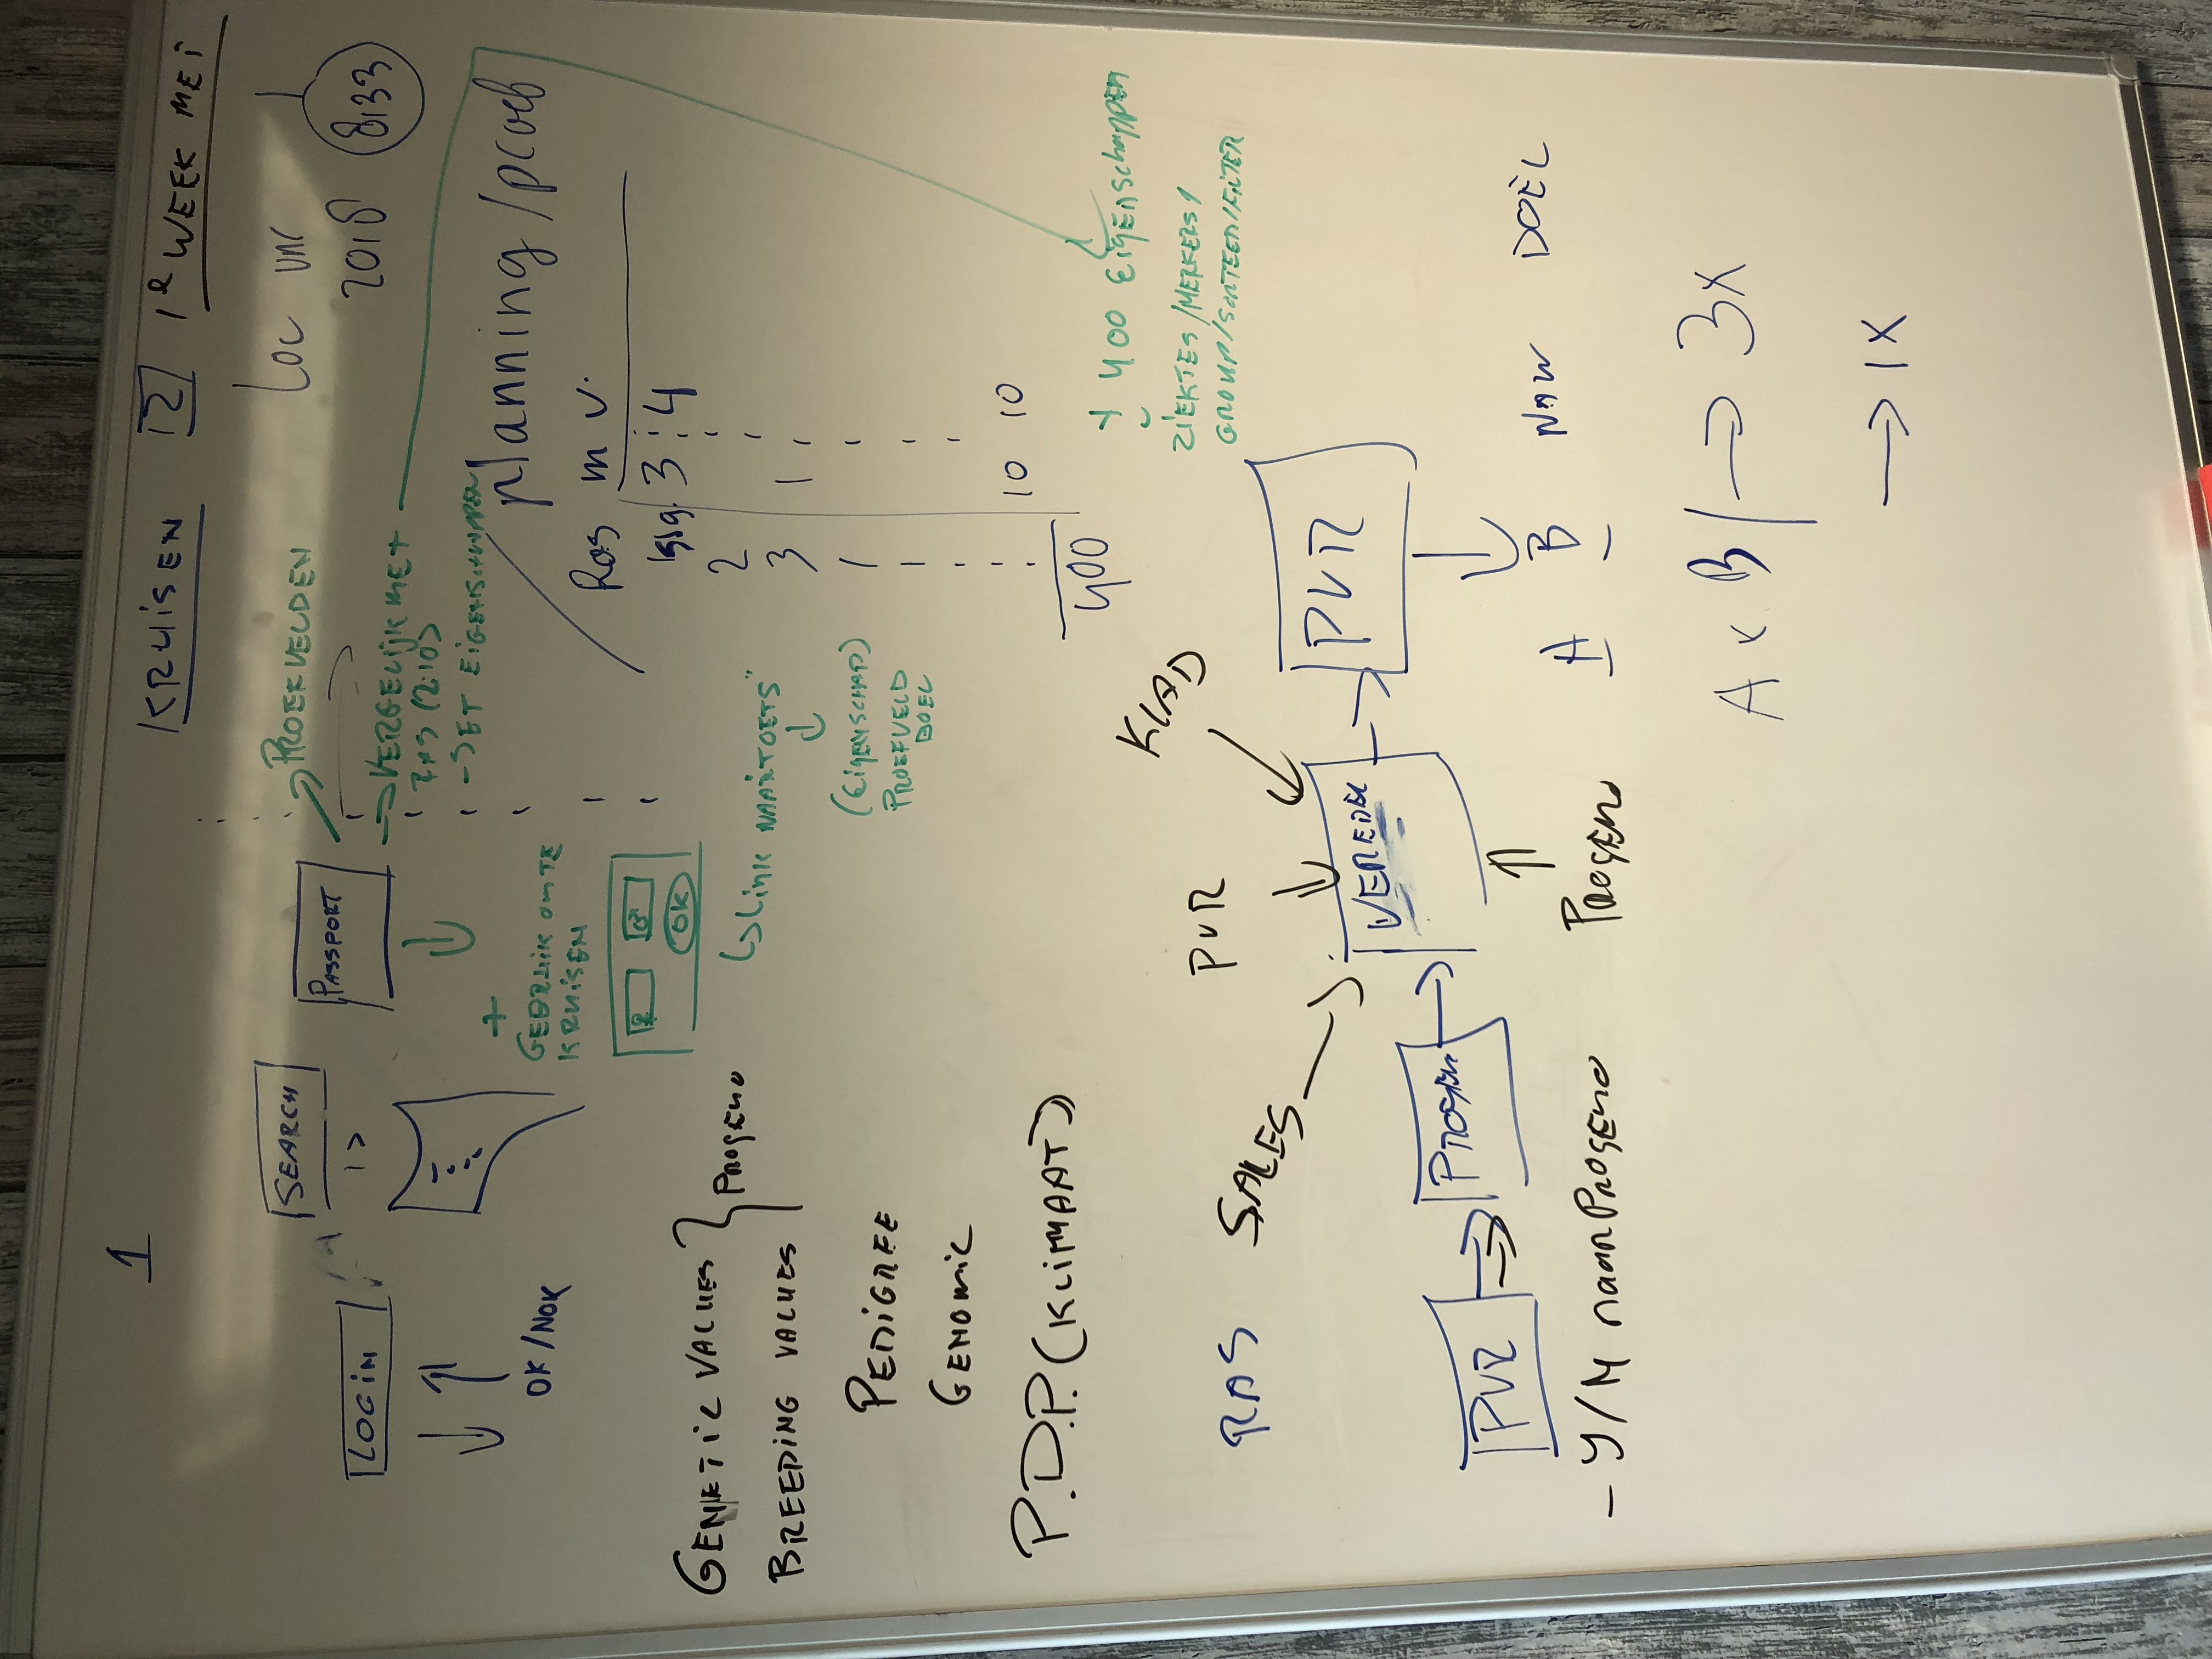 1
KRUISEN 2 1e WEEK MEI
LOGIN
OK/NOK
SEARCH
PASSPORT
PROEFVELDEN
VERGELIJK MET
- SET EIGENSCHAPPEN
+
GEBRUIK OM TE
KRUISEN
♀ ♂
OK
LINK NAAR TOETS"
(EIGENSCHAP)
PROEFVELD
DOEL
2018 8133
planning/
Ras m v.
3 4
2
3 1
1
400 10 10
+ 400 EIGENSCHAPPEN
ZIEKTES/MERKERS/
GROUP/SORTEER/FILTER
GENETIC VALUES
BREEDING VALUES } PROGENO
PEDIGREE
GENOMIC
P.D.P. (KLIMAAT)
RAS SALES PVR KLAD
PVR
PROGENO
VEREDEL
PVR
- Y/N naar PROGENO
PROGENO
A B NAW DOEL
A x B → 3X
→ 1X